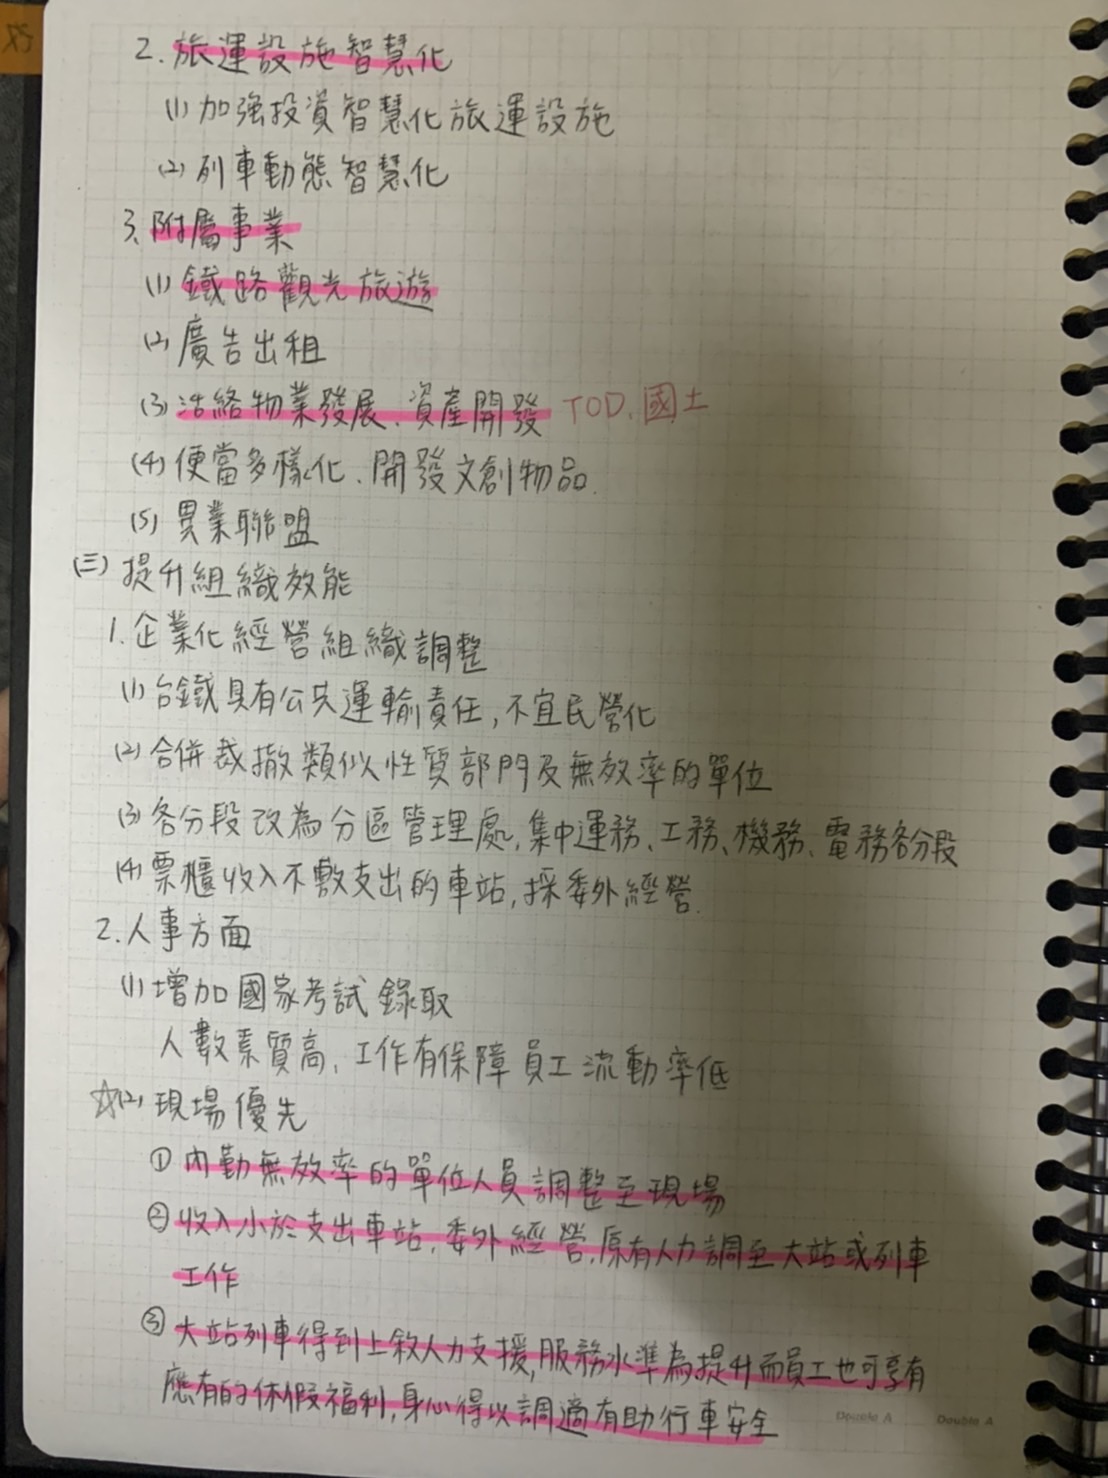 2. 旅運設施智慧化
(1) 加強投資智慧化旅運設施
(2) 列車動態智慧化
3. 附屬事業
(1) 鐵路觀光旅遊
(2) 廣告出租
(3) 活絡物業發展、資產開發 TOD、國土
(4) 便當多樣化、開發文創物品
(5) 異業聯盟
(三) 提升組織效能
1. 企業化經營組織調整
(1) 台鐵具有公共運輸責任,不宜民營化
(2) 合併裁撤類似性質部門及無效率的單位
(3) 各分段改為分區管理處,集中運務、工務、機務、電務各分段
(4) 票櫃收入不敷支出的車站,採委外經營.
2. 人事方面
(1) 增加國家考試錄取
人數素質高,工作有保障員工流動率低
☆(2) 現場優先
① 內勤無效率的單位人員調整至現場
② 收入小於支出車站,委外經營,原有人力調至大站或列車
工作
③ 大站列車得到上敘人力支援,服務水準為提升而員工也可享有
應有的休假福利,身心得以調適有助行車安全
Double A Double A